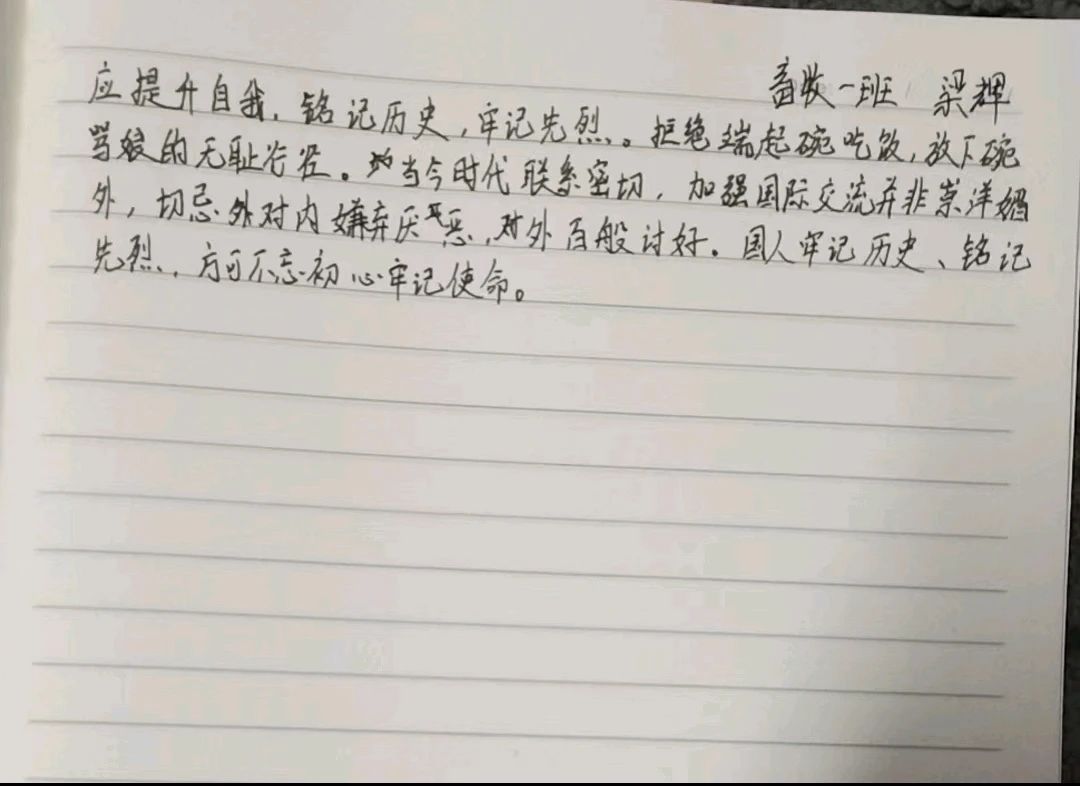 畜牧一班 梁辉
应提升自我，铭记历史，牢记先烈。拒绝端起碗吃饭，放下碗
骂娘的无耻行径。当今时代联系密切，加强国际交流并非崇洋媚
外，切忌外对内嫌弃厌恶，对外百般讨好。国人牢记历史、铭记
先烈，方可不忘初心牢记使命。